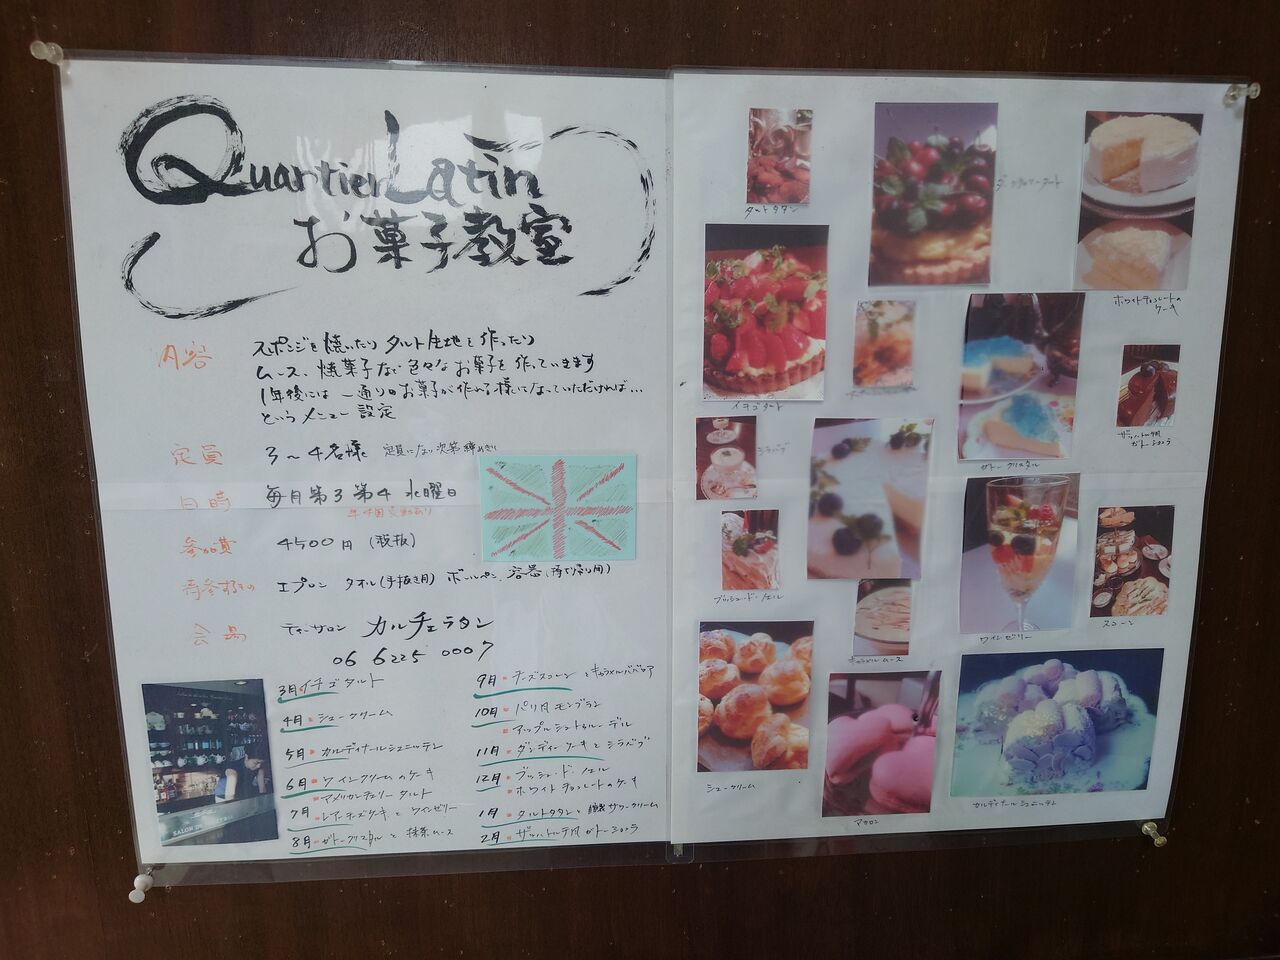 Quartier Latin
お菓子教室
内容
スポンジを焼いたり タルト生地を作ったり
ムース、焼菓子など色々なお菓子を作っていきます
1年後には 一通りのお菓子が作れる様になっていただければ…
というメニュー設定
定員 3〜4名様 定員になり次第締めきり
日時 毎月第3第4水曜日
参加費 4500円(税抜)
持参するもの エプロン タオル(手拭き用) ボールペン、容器(持ち帰り用)
会場 ティーサロン カルチェラタン
06 6225 0007
3月 イチゴタルト
4月 シュークリーム
5月 カルディナールシュニッテン
6月 ワインクリームのケーキ
アメリカンチェリータルト
7月 レアチーズケーキとワインゼリー
8月 ガトークリスタルと抹茶ムース
9月 チーズスコーンとキャラメルババロア
10月 パリ風モンブラン
アップルシュトゥルーデル
11月 ダンディーケーキとシラバブ
12月 ブッシュ・ド・ノエル
ホワイトチョコレートのケーキ
1月 タルトタタンと自家製サワークリーム
2月 ザッハトルテ風ガトーショコラ
SALON DE
タルトタタン
ホワイトチョコレートの
ケーキ
イチゴタルト
ザッハトルテ風
ガトーショコラ
シラバブ
ガトークリスタル
ブッシュ・ド・ノエル
キャラメルムース
ワインゼリー
スコーン
シュークリーム
マカロン
カルディナールシュニッテン